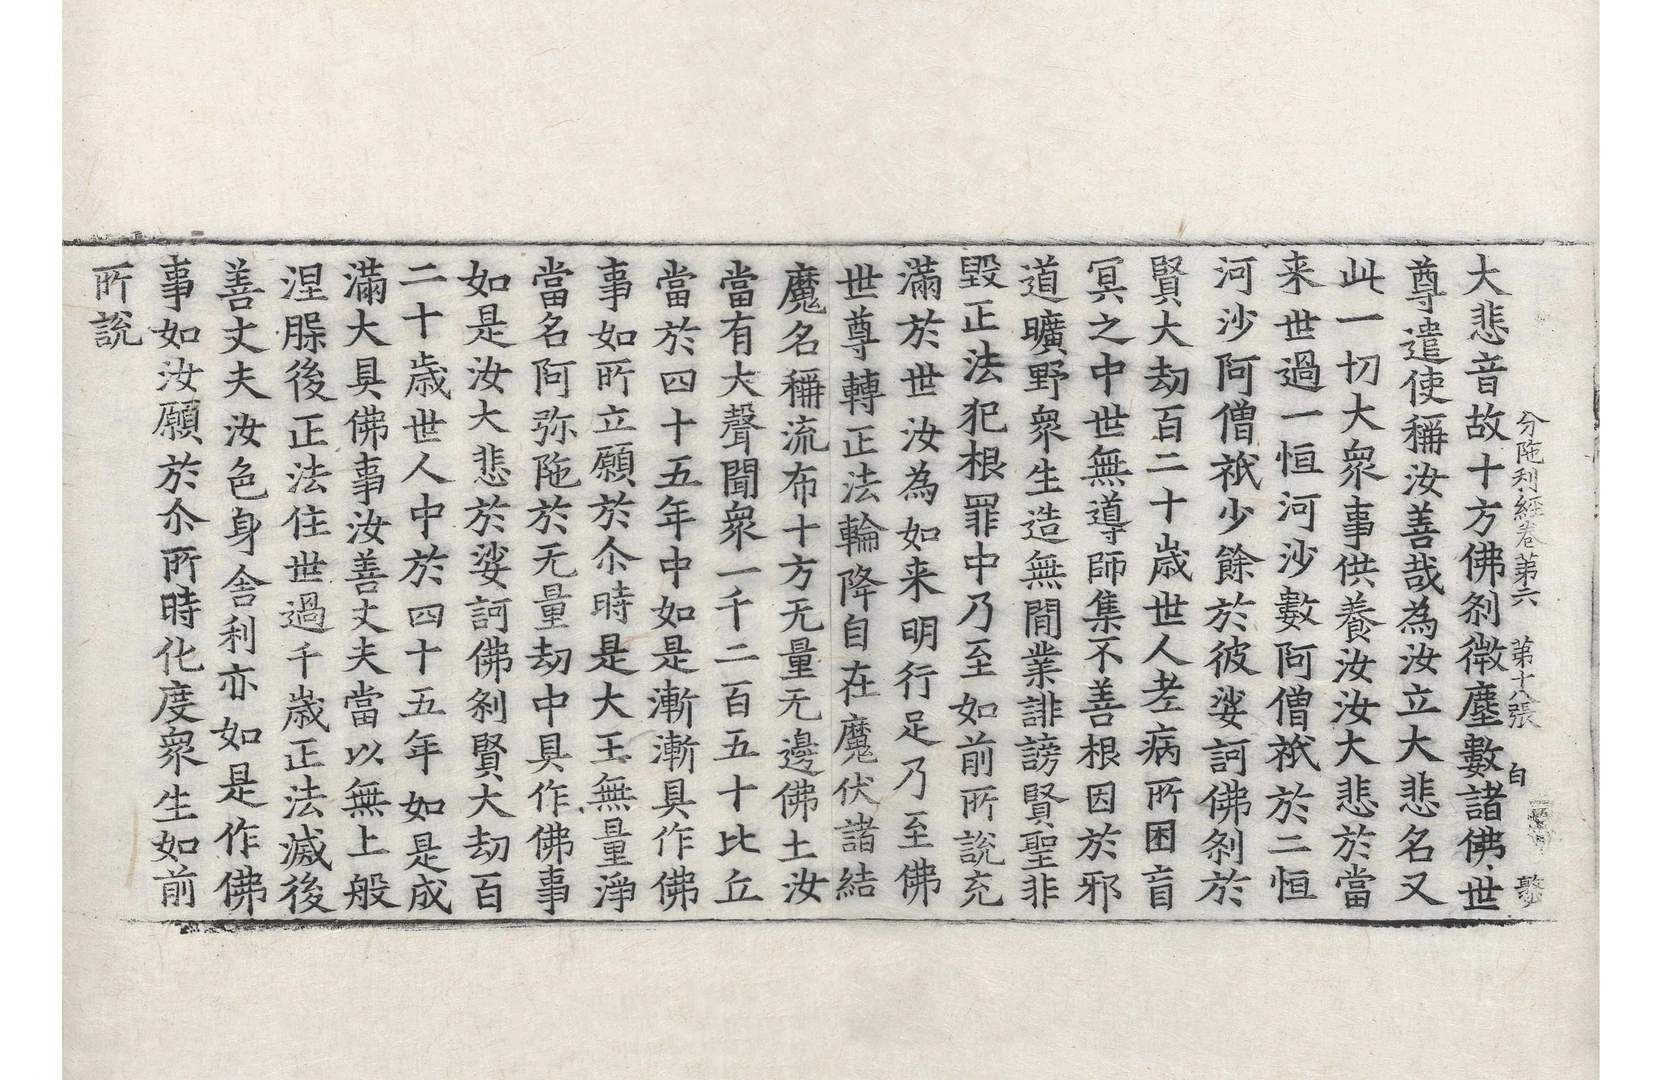 分陁利經卷第六 第十八張 白
大悲音故十方佛刹微塵數諸佛世
尊遣使稱汝善哉為汝立大悲名又
此一切大衆事供養汝汝大悲於當
来世過一恒河沙數阿僧祇於二恒
河沙阿僧祇少餘於彼娑訶佛刹於
賢大劫百二十歳世人老病所困盲
冥之中世無導師集不善根因於邪
道曠野衆生造無間業誹謗賢聖非
毀正法犯根罪中乃至如前所說充
滿於世汝為如来明行足乃至佛
世尊轉正法輪降自在魔伏諸結
魔名稱流布十方无量无邊佛土汝
當有大聲聞衆一千二百五十比丘
當於四十五年中如是漸漸具作佛
事如所立願於尒時是大王無量淨
當名阿弥陁於无量劫中具作佛事
如是汝大悲於娑訶佛刹賢大劫百
二十歳世人中於四十五年如是成
滿大具佛事汝善丈夫當以無上般
涅槃後正法住世過千歳正法滅後
善丈夫汝色身舍利亦如是作佛
事如汝願於尒所時化度衆生如前
所說